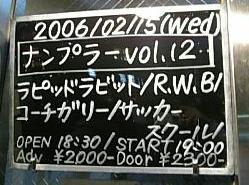 2006/02/15(Wed)
ナンプラーvol.12
ラピッドラビット/R.W.B/
コーチガリー/サッカー
スクール/
OPEN 18:30/START 19:00
Adv ¥2000-Door ¥2300-